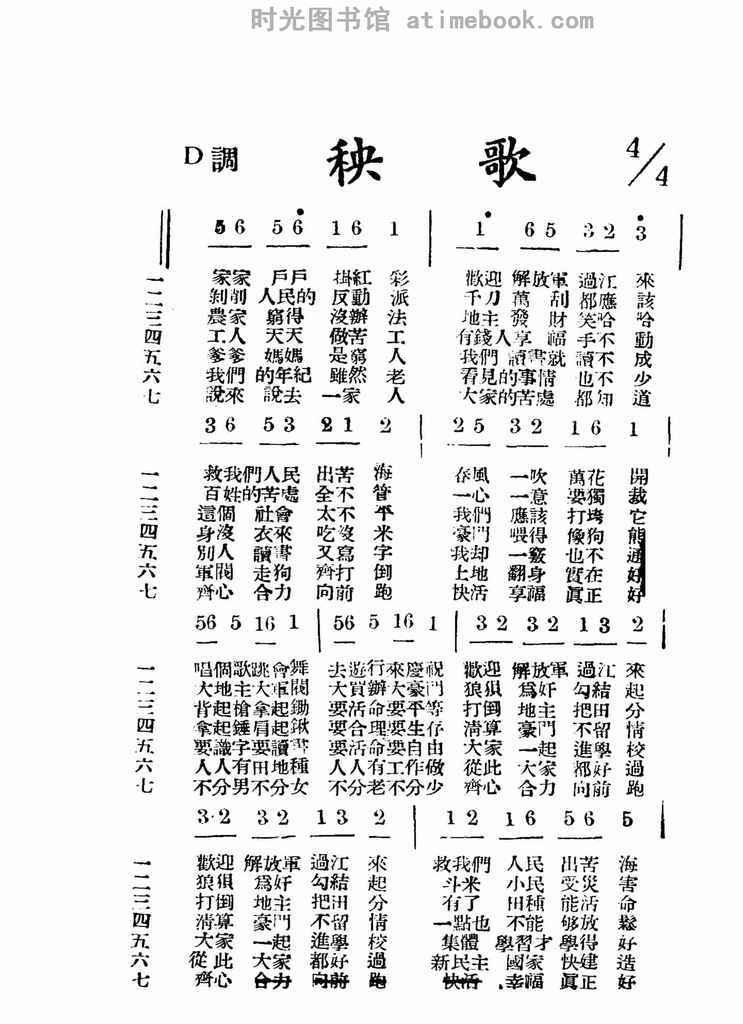 时光图书馆 atimebook.com
D調 秧歌 4/4
5 6 5 6 1 6 1 | 1 6 5 3 2 3
一 家家戶戶掛紅彩 歡迎解放軍過江來
二 剝削人民的反動派 千刀萬刮都應該
三 農家人窮得沒辦法 地主發財笑哈哈
四 工人天天做苦工 有錢人享福手不動
五 爹爹媽媽是窮人 我們讀書就讀不成
六 我們的年紀雖然老 看見的事情也不少
七 說來說去一家人 大家的苦處都知道
3 6 5 3 2 1 2 | 2 5 3 2 1 6 1
一 救我們的人民出苦海 春風一吹萬花開
二 百姓的苦處全不管 一心一意要獨裁
三 這個社會太不平 我們應該打垮它
四 身沒衣來吃沒米 豪門喂得像狗能
五 別人讀書又寫字 我却一竅也不通
六 軍閥走狗齊打倒 翻身實在好
七 齊心合力向前跑 快活享福眞正好
56 5 16 1 | 56 5 16 1 | 3 2 3 2 1 3 2
一 唱個歌跳會舞 去遊行來慶祝 歡迎解放軍過江來
二 大地主大軍閥 大買辦大豪門 狼狽爲奸勾結起
三 背起槍拿起鋤 要活命要平等 打倒地主把田分
四 拿起錘肩起鍬 要合理要生存 清算豪門不留情
五 要識字要讀書 要活命要自由 大家一起進學校
六 人人有田地種 人人有工作做 從此大家都好過
七 不分男不分女 不分老不分少 齊心合力向前跑
3·2 3 2 1 3 2 | 1 2 1 6 5 6 5
一 歡迎解放軍過江來 救我們人民出苦海
二 狼狽爲奸勾結起 斗米小民受災害
三 打倒地主把田分 有了田種能活命
四 清算豪門不留情 一點也不能够放鬆
五 大家一起進學校 集體學習才學得好
六 從此大家都好過 新民主國家快建造
七 齊心合力向前跑 快活幸福眞正好